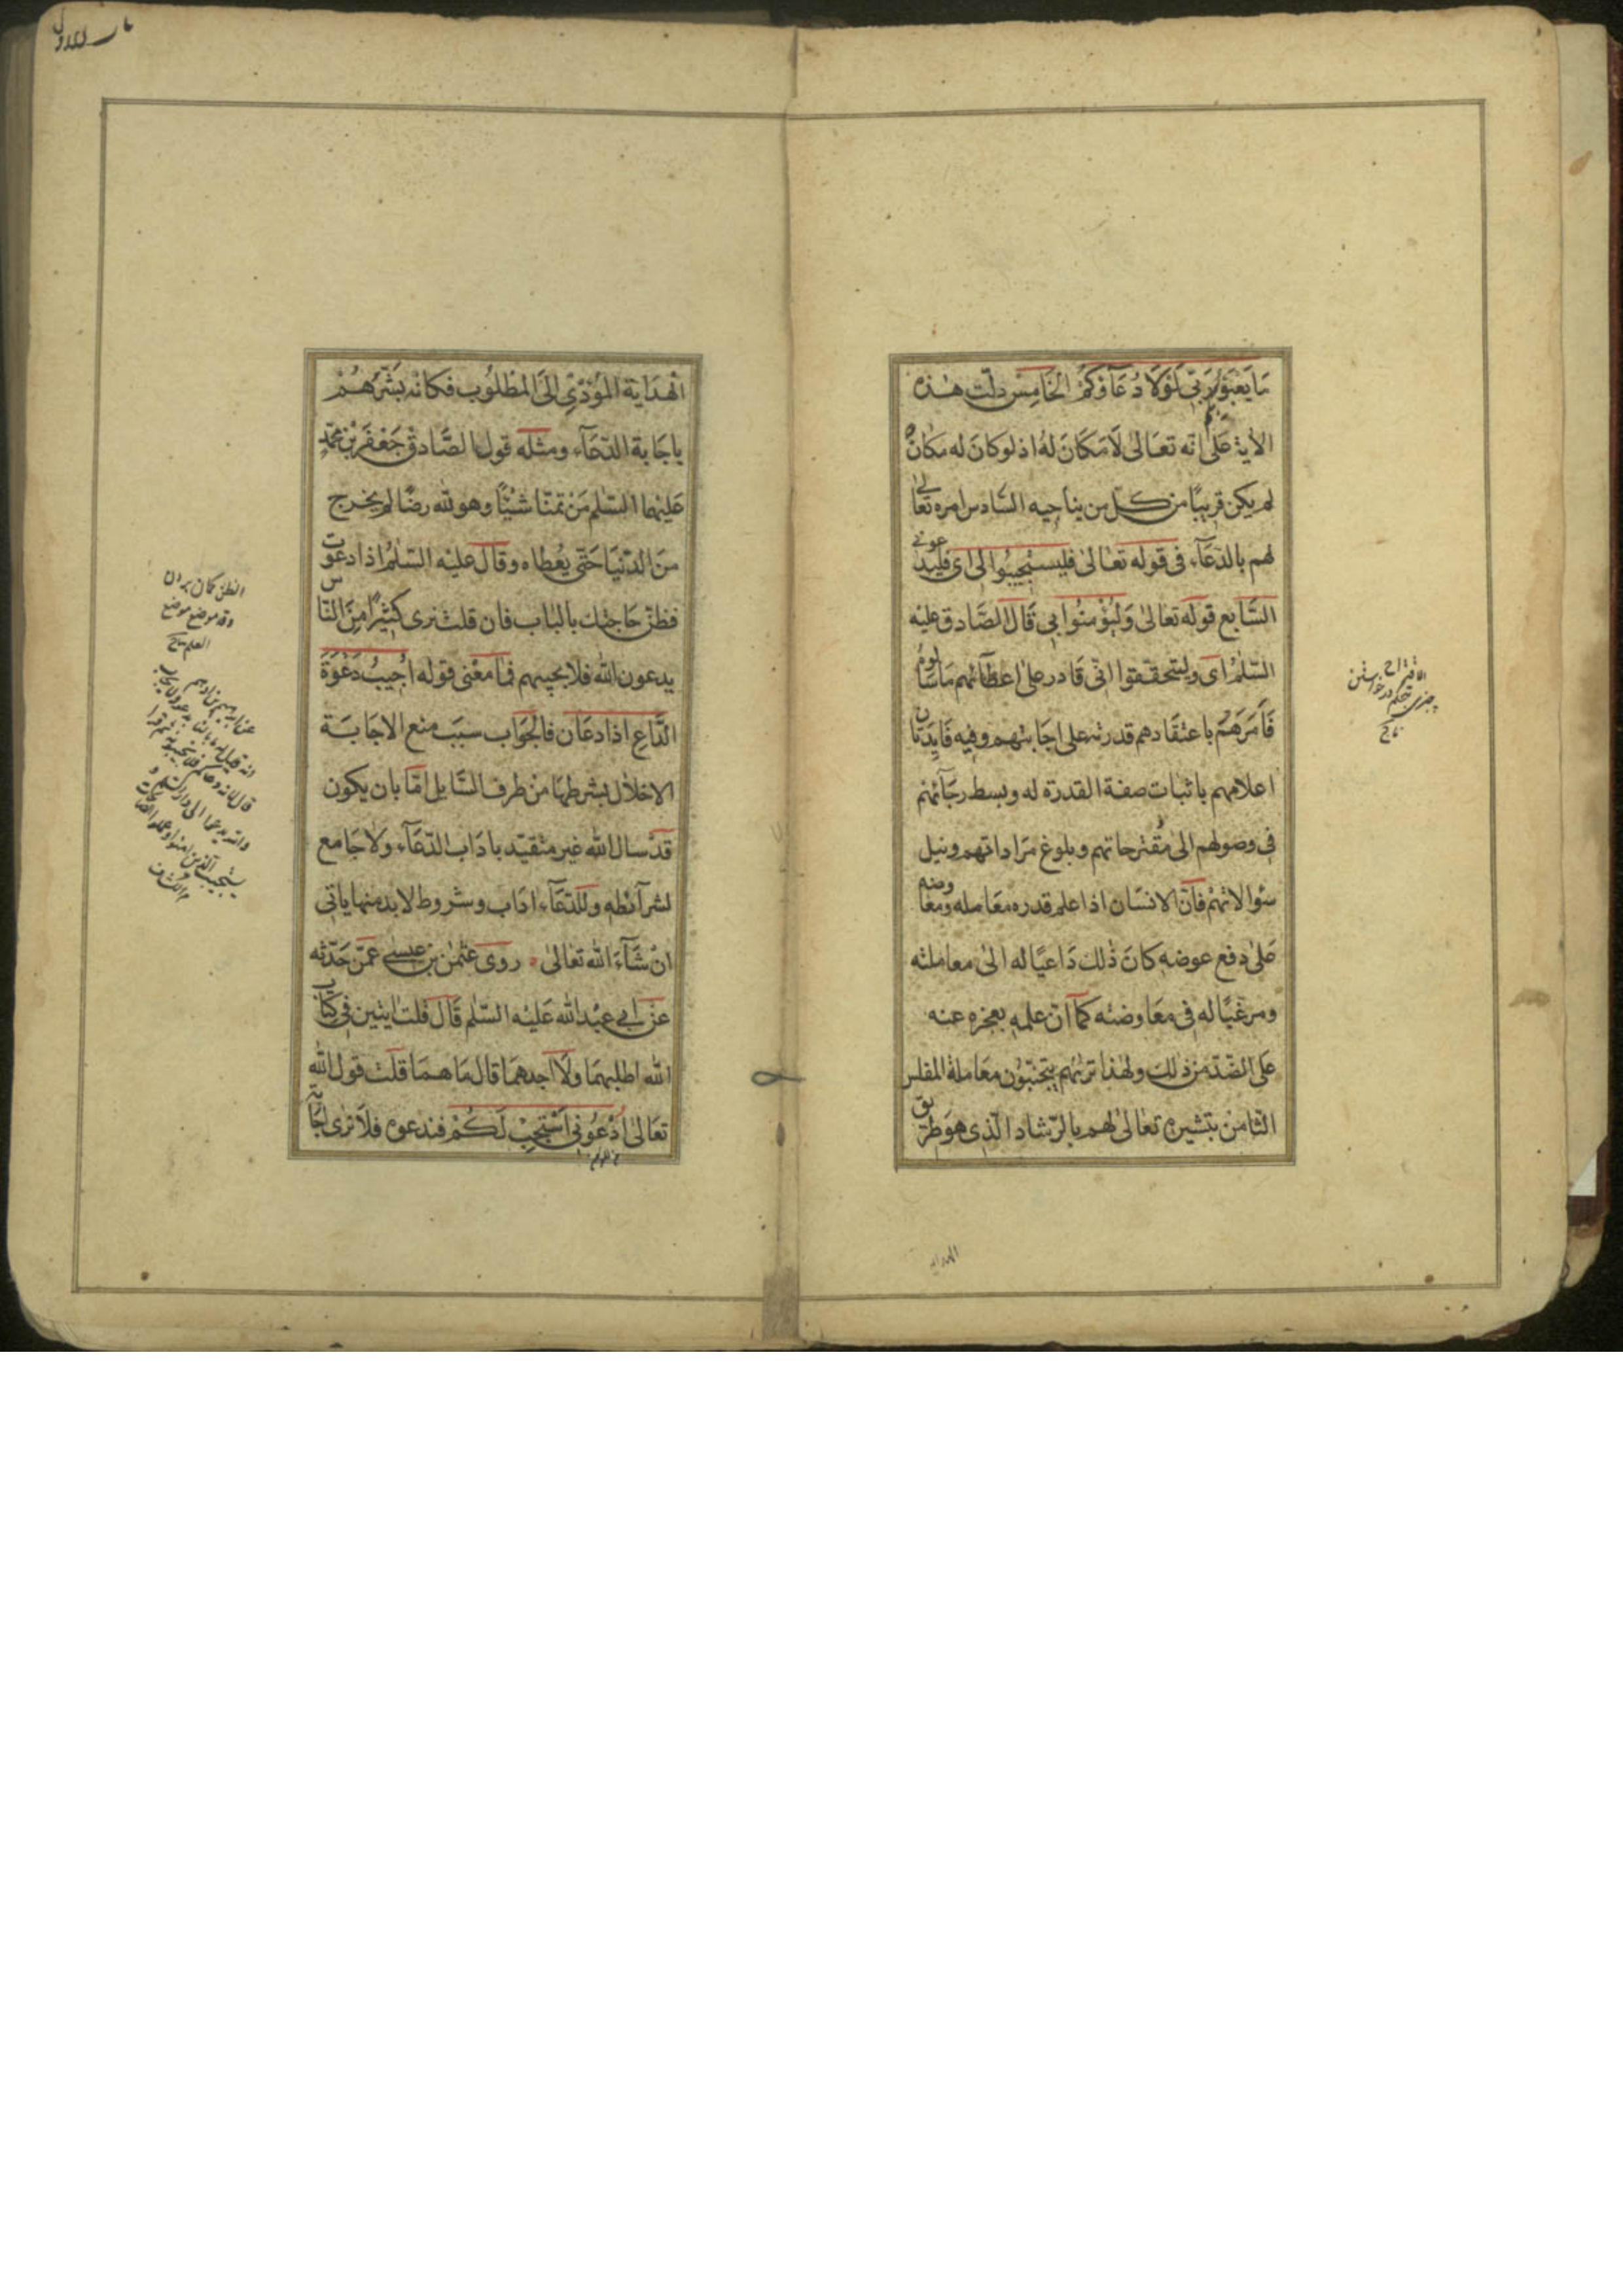 مَا يَعْبَؤُا بِكُمْ رَبّي لَوْلَا دُعَآؤكُمُ الْخَامِسْ دلّت هٰذه
الآية عَلىٰ انّه تعَالىٰ لَا مَكَانَ لهُ اذ لو كانَ له مكانٌ
لم يكن قريبًا من كلّ من يناجيه السّادس امره تعَالىٰ
لهم بالدّعَآء فى قوله تعَالىٰ فليستجيبُوا لى اى فليدعونى
السَّابع قوله تعالىٰ وَليُؤْمنُوا بي قَالَ الصَّادق عليْه
السّلٰمُ اى وليتحقّقوا انّى قَادر على اعطآئهم مَا سَألُوهُ
فَأمَرَهمْ باعتقَادهم قدرته على اجَابتهم وفيه فايدتان
اعلامهم باثبات صفة القدرة له وبسط رجَآئهم
فى وصولهم الىٰ مُقترحاتهم وبلوغ مَراداتهم ونيل
سؤالاتهمْ فانّ الانسَان اذا علم قدره معَامله ومعاوضه
على دفع عوضه كانَ ذٰلك دَاعيًا له الىٰ معاملته
ومرغّبًا له فى معَاوضته كمَا انّ علمه بعجزه عنه
عَلى الضّدّ من ذٰلك ولهٰذا ترٰيهُم يتجنّبُون معَاملة المفلس
الثّامن تبشيره تعَالىٰ لهم بالرّشاد الّذى هوَ طريق
الاقتراح
چیزی بتحکم در خواستن
تاج
الهداية
الْهدَاية الْمُؤدّى الَى المَطْلُوب فكانّه بَشّرَهُمْ
باجَابة الدّعَآء ومثله قول الصَّادق جَعْفَر بن محمّد
عَليْهما السّلٰم مَنْ تمنّا شيْئًا وهو لله رضًا لم يخرج
منَ الدّنيَا حَتّى يعُطاه وقالَ عليْه السّلٰمُ اذا دعَوْت
فظنّ حَاجتك بالبَاب فان قلتَ نرى كثيْرًا مِنَ النّاس
يدعون الله فلا يجيبهم فمَا معْنى قوله اُجيبُ دَعْوَةَ
الدَّاعِ اذا دعَان فالجَوَاب سبَبَ منع الاجَابَة
الاخلال بشرطهَا منْ طرف السَّايل امّا بان يكون
قدْ سال الله غير متقيّد بادَاب الدّعَآء ولا جَامع
لشرآئطه وللدّعَآء ادَاب وشروط لا بد منها ياتى
انْ شَآءَ الله تعَالىٰ روى عثمٰن بن عيسى عمّن حدّثه
عن ابى عبْد الله عَليْه السّلٰم قَال قلت ايتين فى كتاب
الله اطلبهمَا ولَا اجدهمَا قال مَا همَا قلت قول الله
تعَالىٰ اُدْعُونى اَسْتَجِبْ لَكُمْ فندعوه فلَا نرٰى اجَابة
الظنّ کمان بردن
وقد موضع موضع
العلم تاج